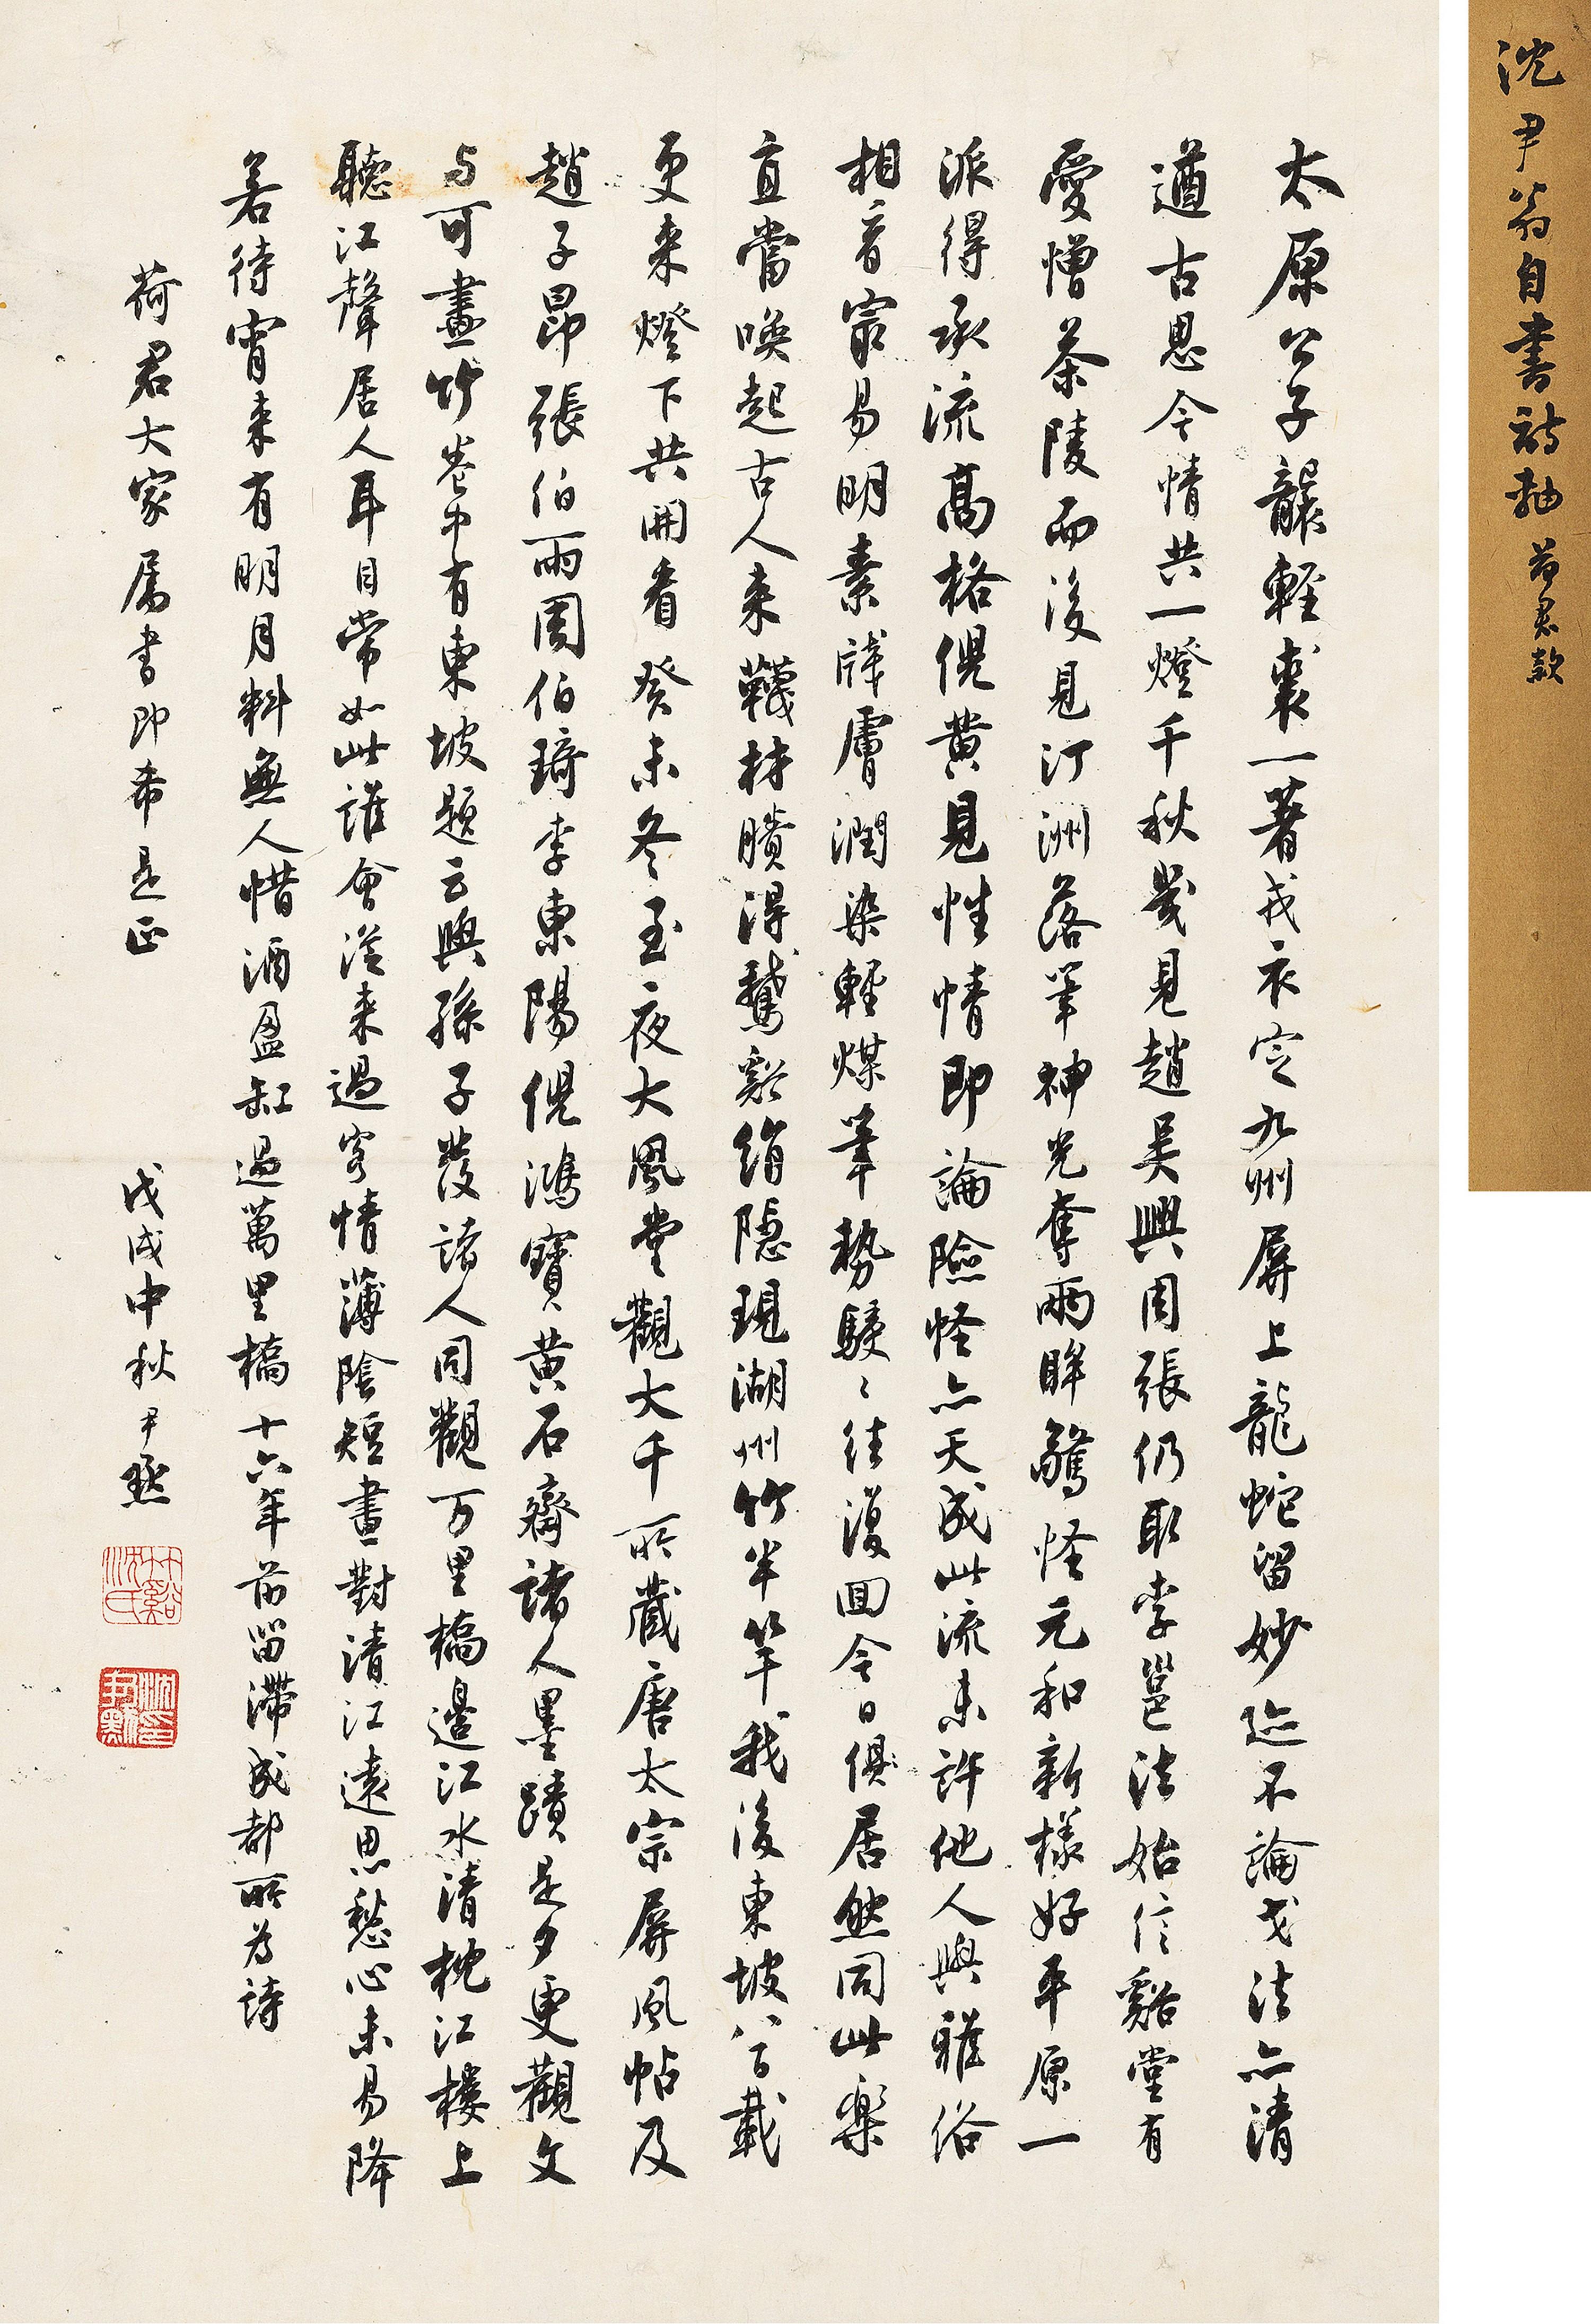 沈尹翁自書詩軸 荷君款
太原公子龍讓輕裘一著戎衣定九州屏上龍蛇留妙迹不論戈法亦清
遒古思今情共一燈千秋幾見趙吳興周張仍取李邕法始信谿堂有
愛憎茶陵而後見汀洲落筆神光奪兩眸驚怪元和新樣好平原一
派得承流高格倪黃見性情即論險怪亦天成此流未許他人與雅俗
相看最易明素牋膚潤染輕煤筆勢駸〻往復回今日俱居然同此樂
直當喚起古人來韈材賸得鵝谿絹隱現湖州竹半竿我後東坡八百載
更來燈下共開看癸未冬至夜大風堂觀大千所藏唐太宗屏風帖及
趙子昂張伯雨周伯琦李東陽倪鴻寶黃石齋諸人墨蹟是夕更觀文
与可畫竹卷中有東坡題云與孫子發諸人同觀万里橋邊江水清枕江樓上
聽江聲居人耳目常如此誰會溢來過客情薄陰短晝對清江遠思愁心未易降
若待宵來有明月料無人惜酒盈缸過萬里橋十六年前留滯成都所為詩
荷君大家屬書即希是正 戊戌中秋尹默
竹谿沈氏
沈尹默印